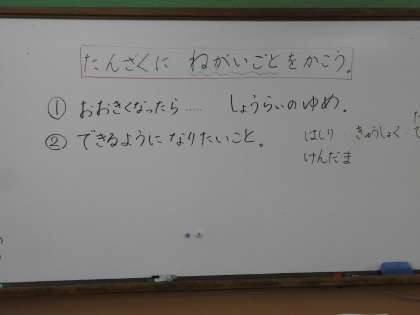 たんざくに ねがいごとをかこう。
① おおきくなったら..... しょうらいのゆめ.
② できるように なりたいこと。
はしり・きゅうしょく・
けんだま